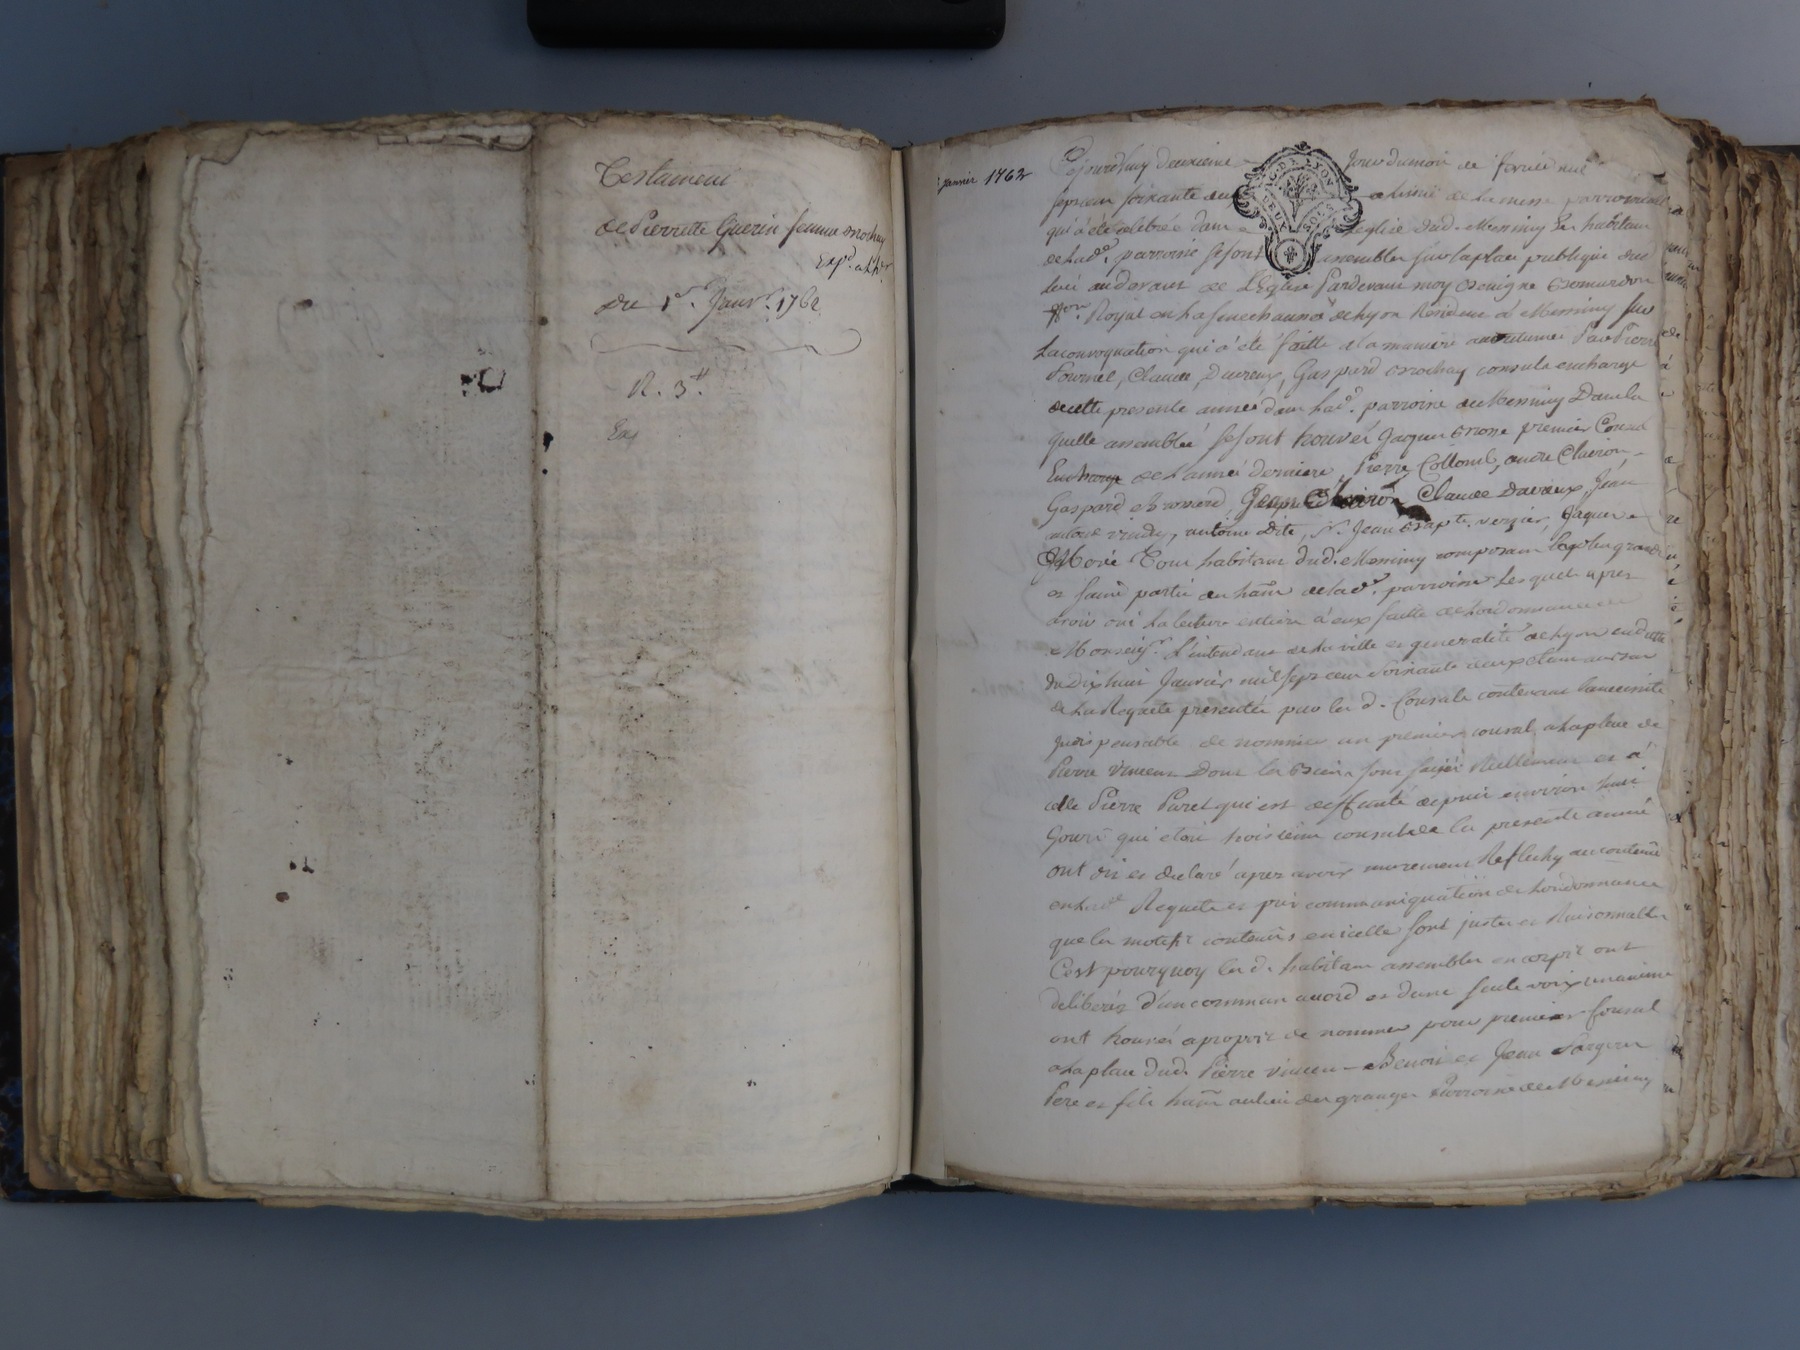 Testament
de Pierrette Guerin femme Brochay
Exp.d
du 1er. Janvr. 1762
R. 3ᵗᵗ
Ex
Janvier 1762
G. DE LYON
DEUX SOLS
Cejourdhuy deuxieme jour du mois de fevrié mil
sept cent soixante deux a lissuë de la messe parroissialle
qui a été celebrée dans leglise dud. Messimy les habitans
de lad.e parroisse se sont assemblés sur la place publique dud
lieu au devant de LEglise Pardevant moy
Royal en la senechaussé de Lyon Resident a Messimy sur
La convoquation qui a été faitte a la maniere accoutumée Par Pierre
Fournel, Claude Daveux, Gaspard Brochay consuls en charge
de cette presente année dans lad.e parroisse de Messimy Dans la
quelle assemblée se sont trouvés Jacques premier Consul
En charge de Lannée derniere, Pierre Collomb, andré Clairon
Gaspard Jean Clairon Claude Daveux, Jean
antoine Dite, Sr. Jean Bapte. verzier, Jaques
Tous habitans dud. Messimy composant la plus grande
et saine partie des hans de lad.e parroisse Lesquels apres
avoir oui La lecture entiere a eux faitte de Lordonnance de
Monseigr. L'intendant de la ville et generalité de Lyon en datte
du Dix huit Janvier mil sept cent soixante deux etant au bas
de La Requete presentée par les d. Consuls contenant la necessité
Indispensable de nommer un premier consul a la place de
Pierre Vincent Dont les Biens sont saisis Réellement et a
celle Pierre Paret qui est deffunté depuis environ huit
Jours qui etoit troisieme consul de la presente année
ont dit et declaré apres avoir murement Reflechy au contenu
en lad.e Requete et pris communiquation de Lordonnance
que les motifs contenus en icelle sont justes et Raisonnables
C'est pourquoy les d. habitans assemblés en corps ont
deliberés d'un commun accord et d'une seule voix unanime
ont trouvés apropos de nommer pour premier Consul
a la place dud. Pierre vincent Benoit et Jean
Pere et fils hans au lieu des granges Parroisse de Messimy